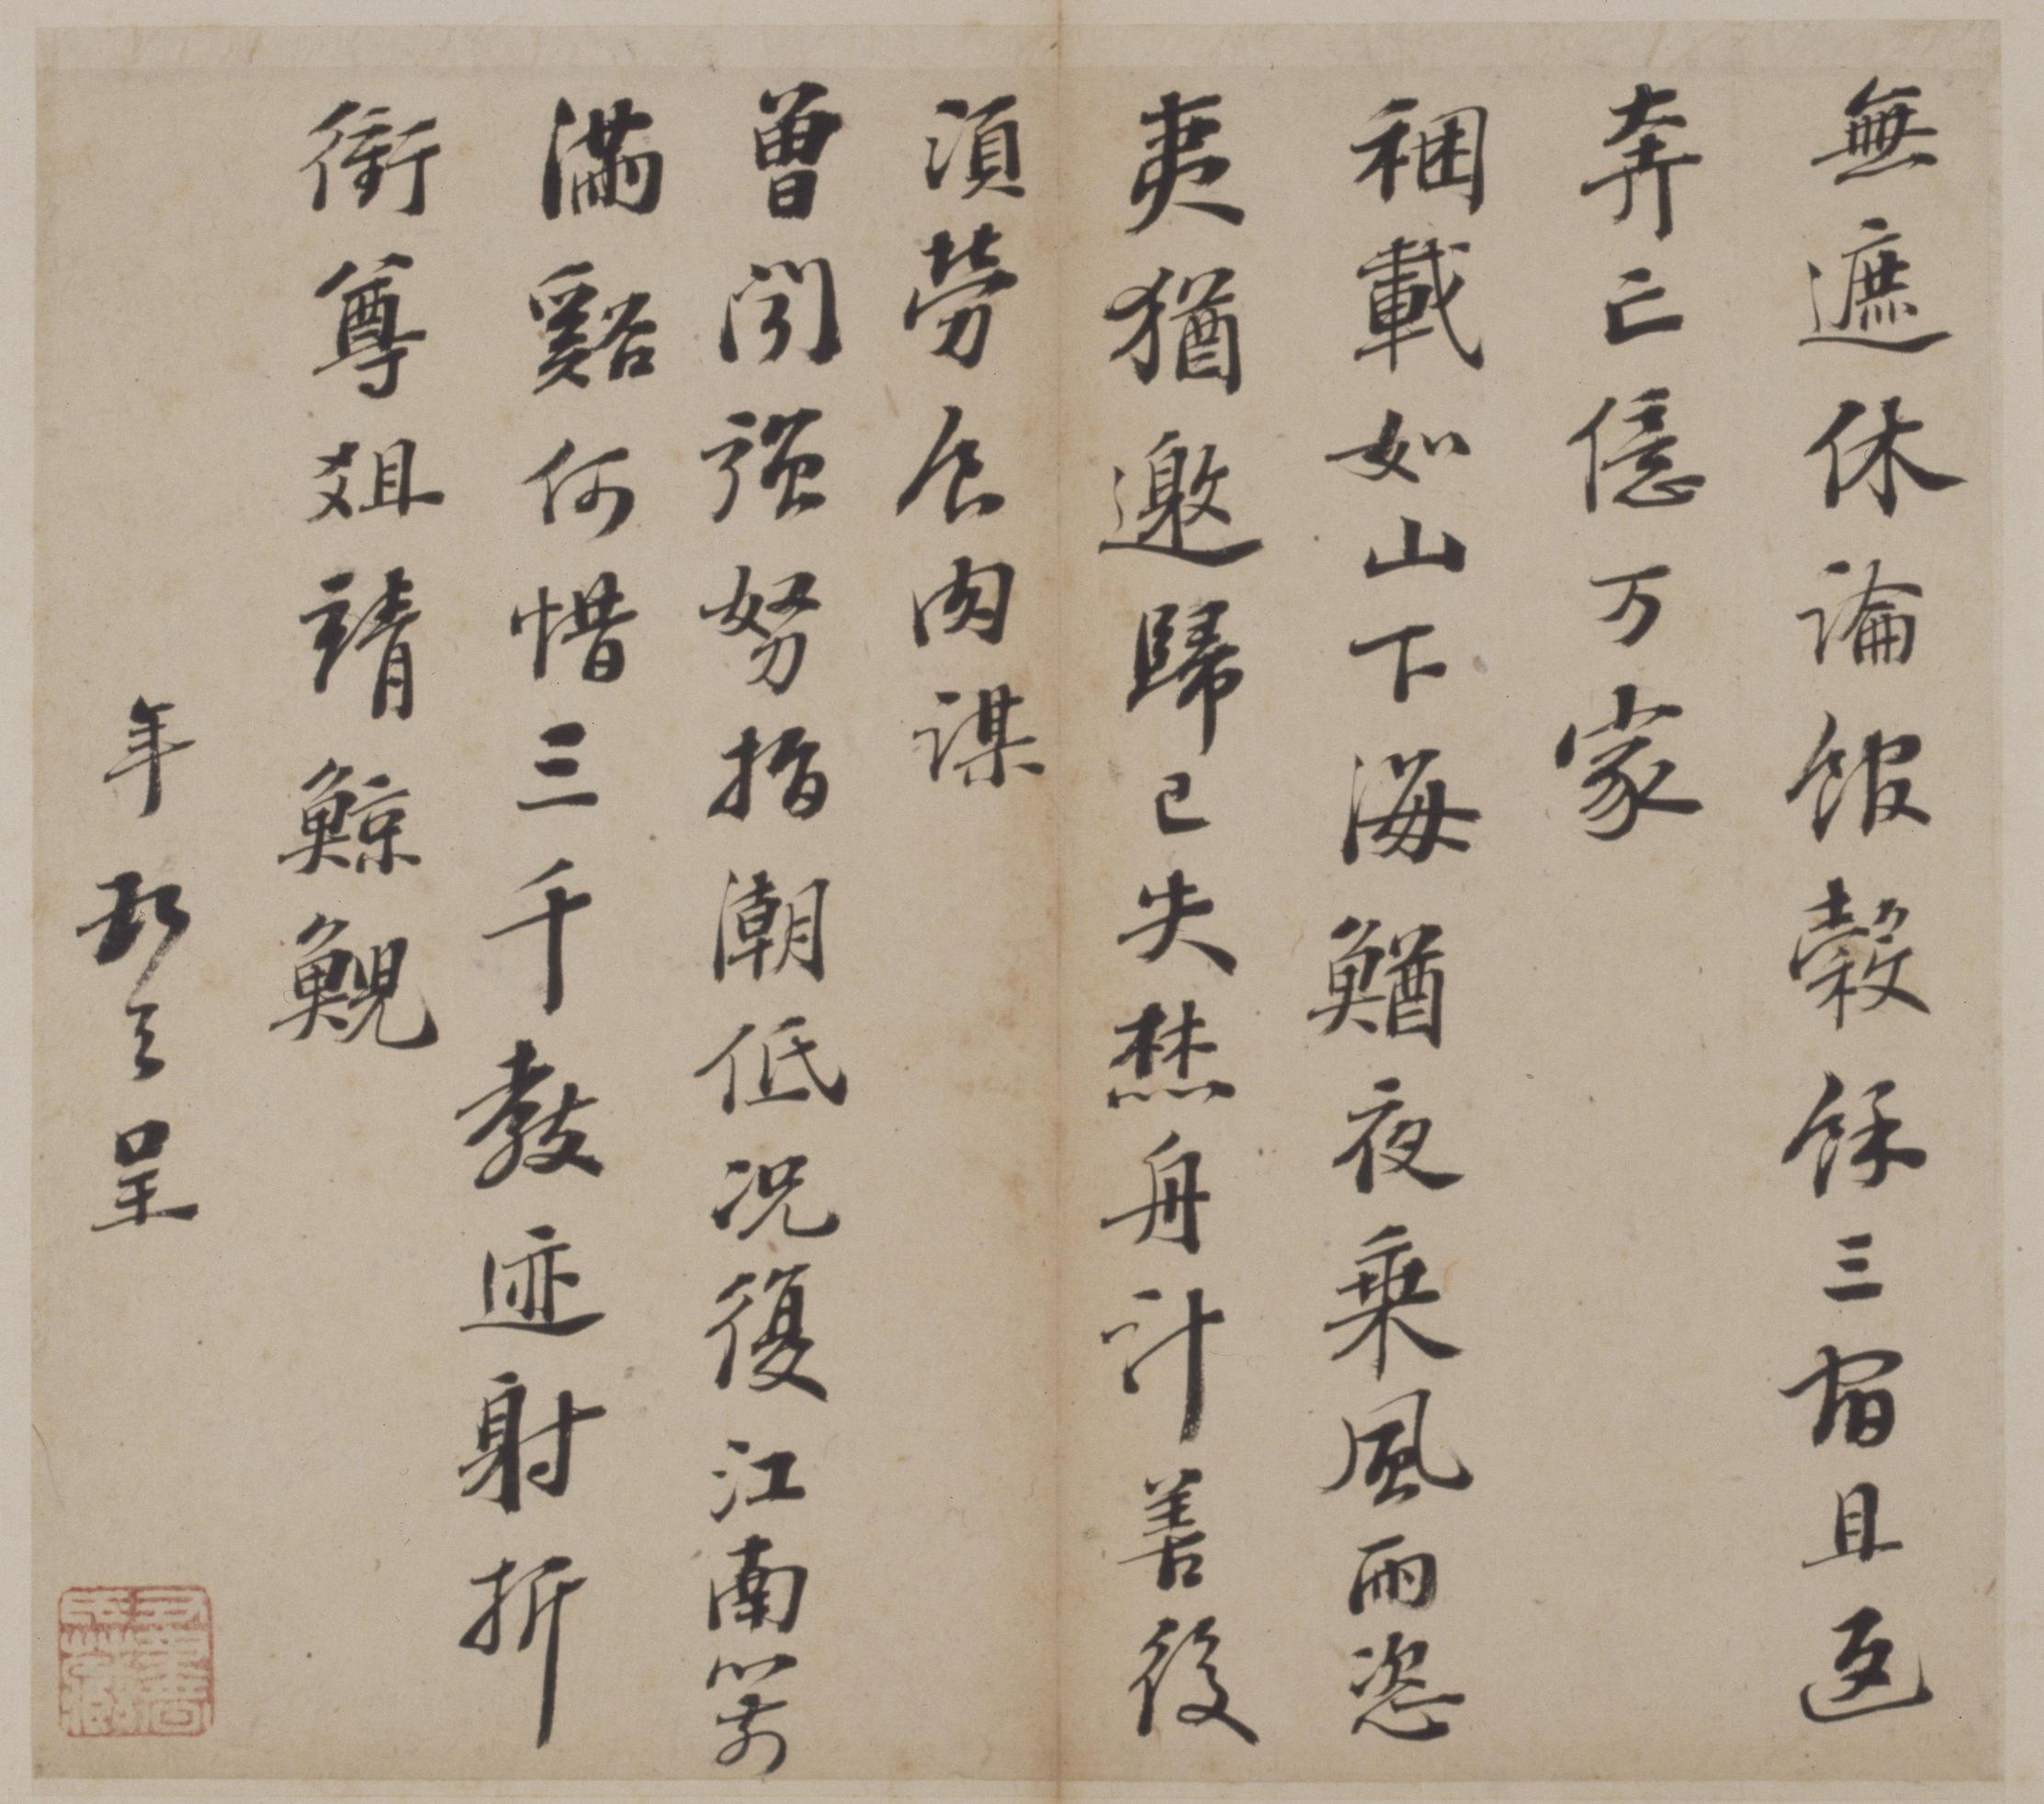 無遮休論館穀餘三宿且返
奔亡億万家
捆載如山下海鰌夜乘風雨恣
夷猶邀歸已失焚舟計善後
須勞食肉謀
曾聞強弩指潮低況復江南箭
滿谿何惜三千教迹射折
衝尊俎靖鯨鯢
年
呈